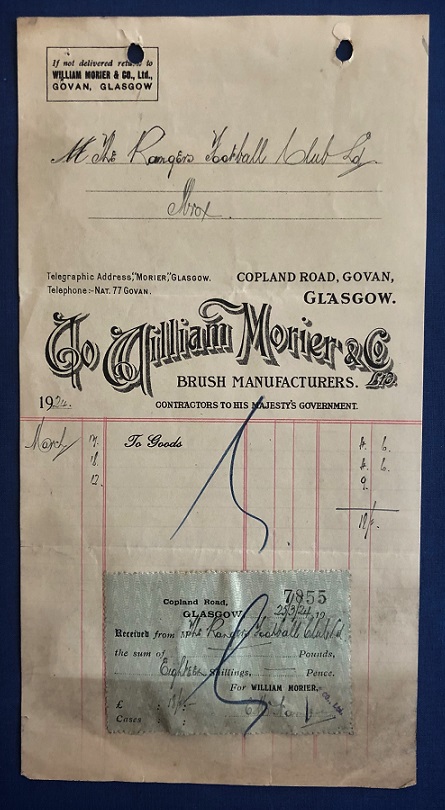 If not delivered return to
WILLIAM MORIER & Co., Ltd.,
GOVAN, GLASGOW
M The Rangers Football Club Ld
Ibrox.
Telegraphic Address, "MORIER," GLASGOW.
Telephone:- NAT. 77 GOVAN.
COPLAND ROAD, GOVAN,
GLASGOW.
To William Morier & Co LTD.
BRUSH MANUFACTURERS.
CONTRACTORS TO HIS MAJESTY'S GOVERNMENT.
1924.
March 7. To Goods 4. 6.
8. 4. 6.
12. 9.
18/-
7855
Copland Road,
GLASGOW 25/3/24 19
Received from The Rangers Football Club Ld
the sum of Pounds,
Eighteen Shillings, Pence.
For WILLIAM MORIER & Co., Ltd.
£ : 18/- :
Cases : :